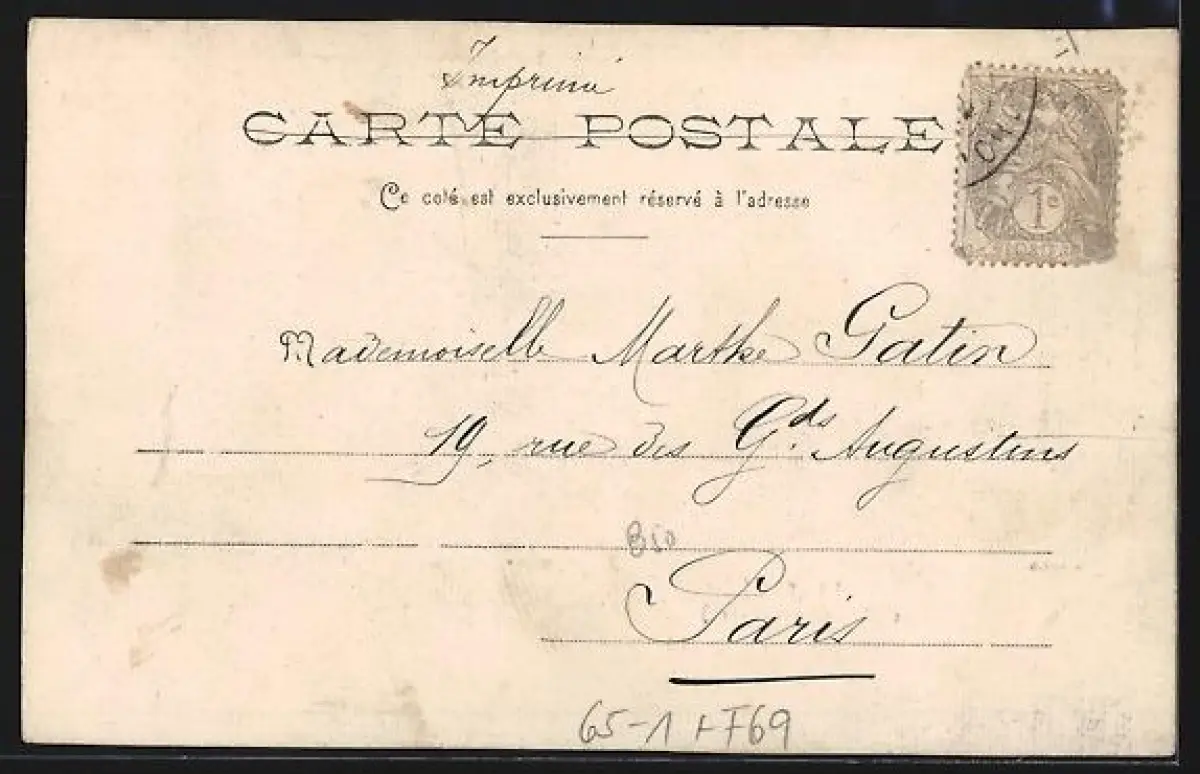 Imprimé
CARTE POSTALE
Ce coté est exclusivement réservé à l'adresse
1c
Mademoiselle Marthe Gatin
19, rue des Gds Augustins
850
Paris
65-1 + F69